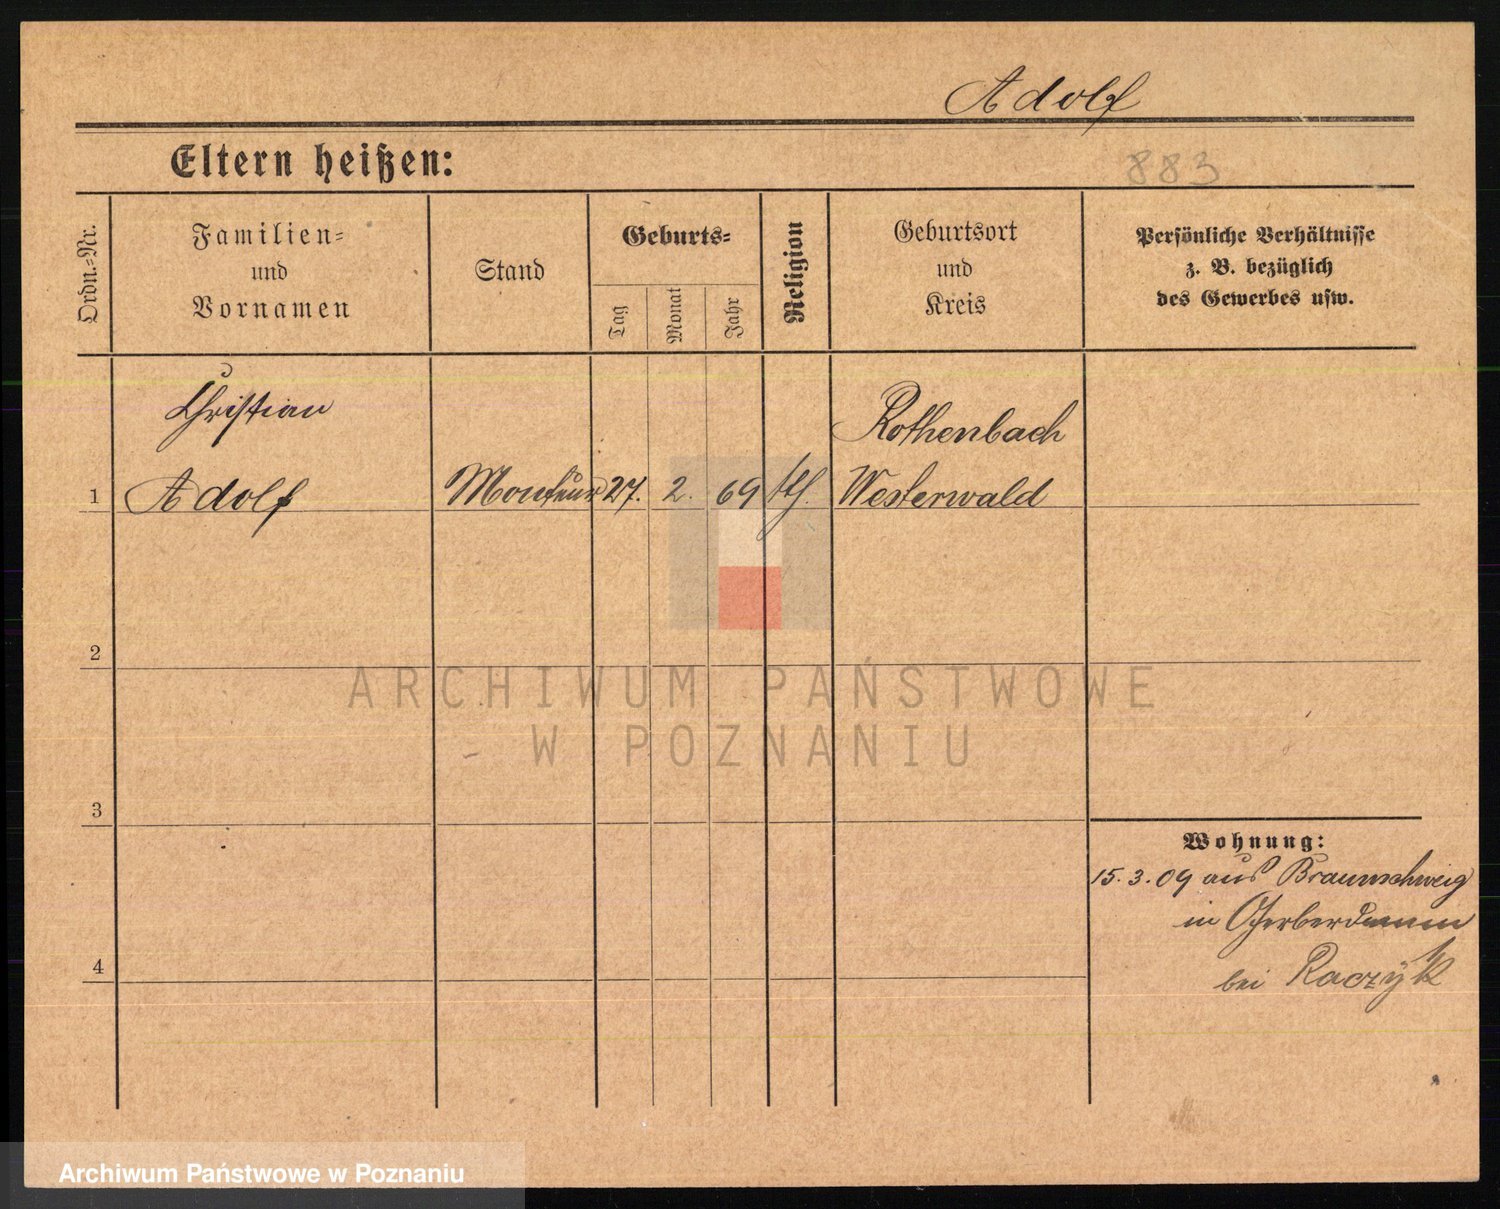 Adolf
Eltern heißen:
883
Ordn.-Nr.
Familien-
und
Vornamen
Stand
Geburts-
Tag
Monat
Jahr
Religion
Geburtsort
und
Kreis
Persönliche Verhältnisse
z. B. bezüglich
des Gewerbes usw.
Christian
Rothenbach
1 Adolf Monteur 27. 2. 69 Westerwald
2
ARCHIWUM PAŃSTWOWE
W POZNANIU
3
Wohnung:
15.3.09 aus Braunschweig
in Gerberdamm
4
bei Raczyk
Archiwum Państwowe w Poznaniu